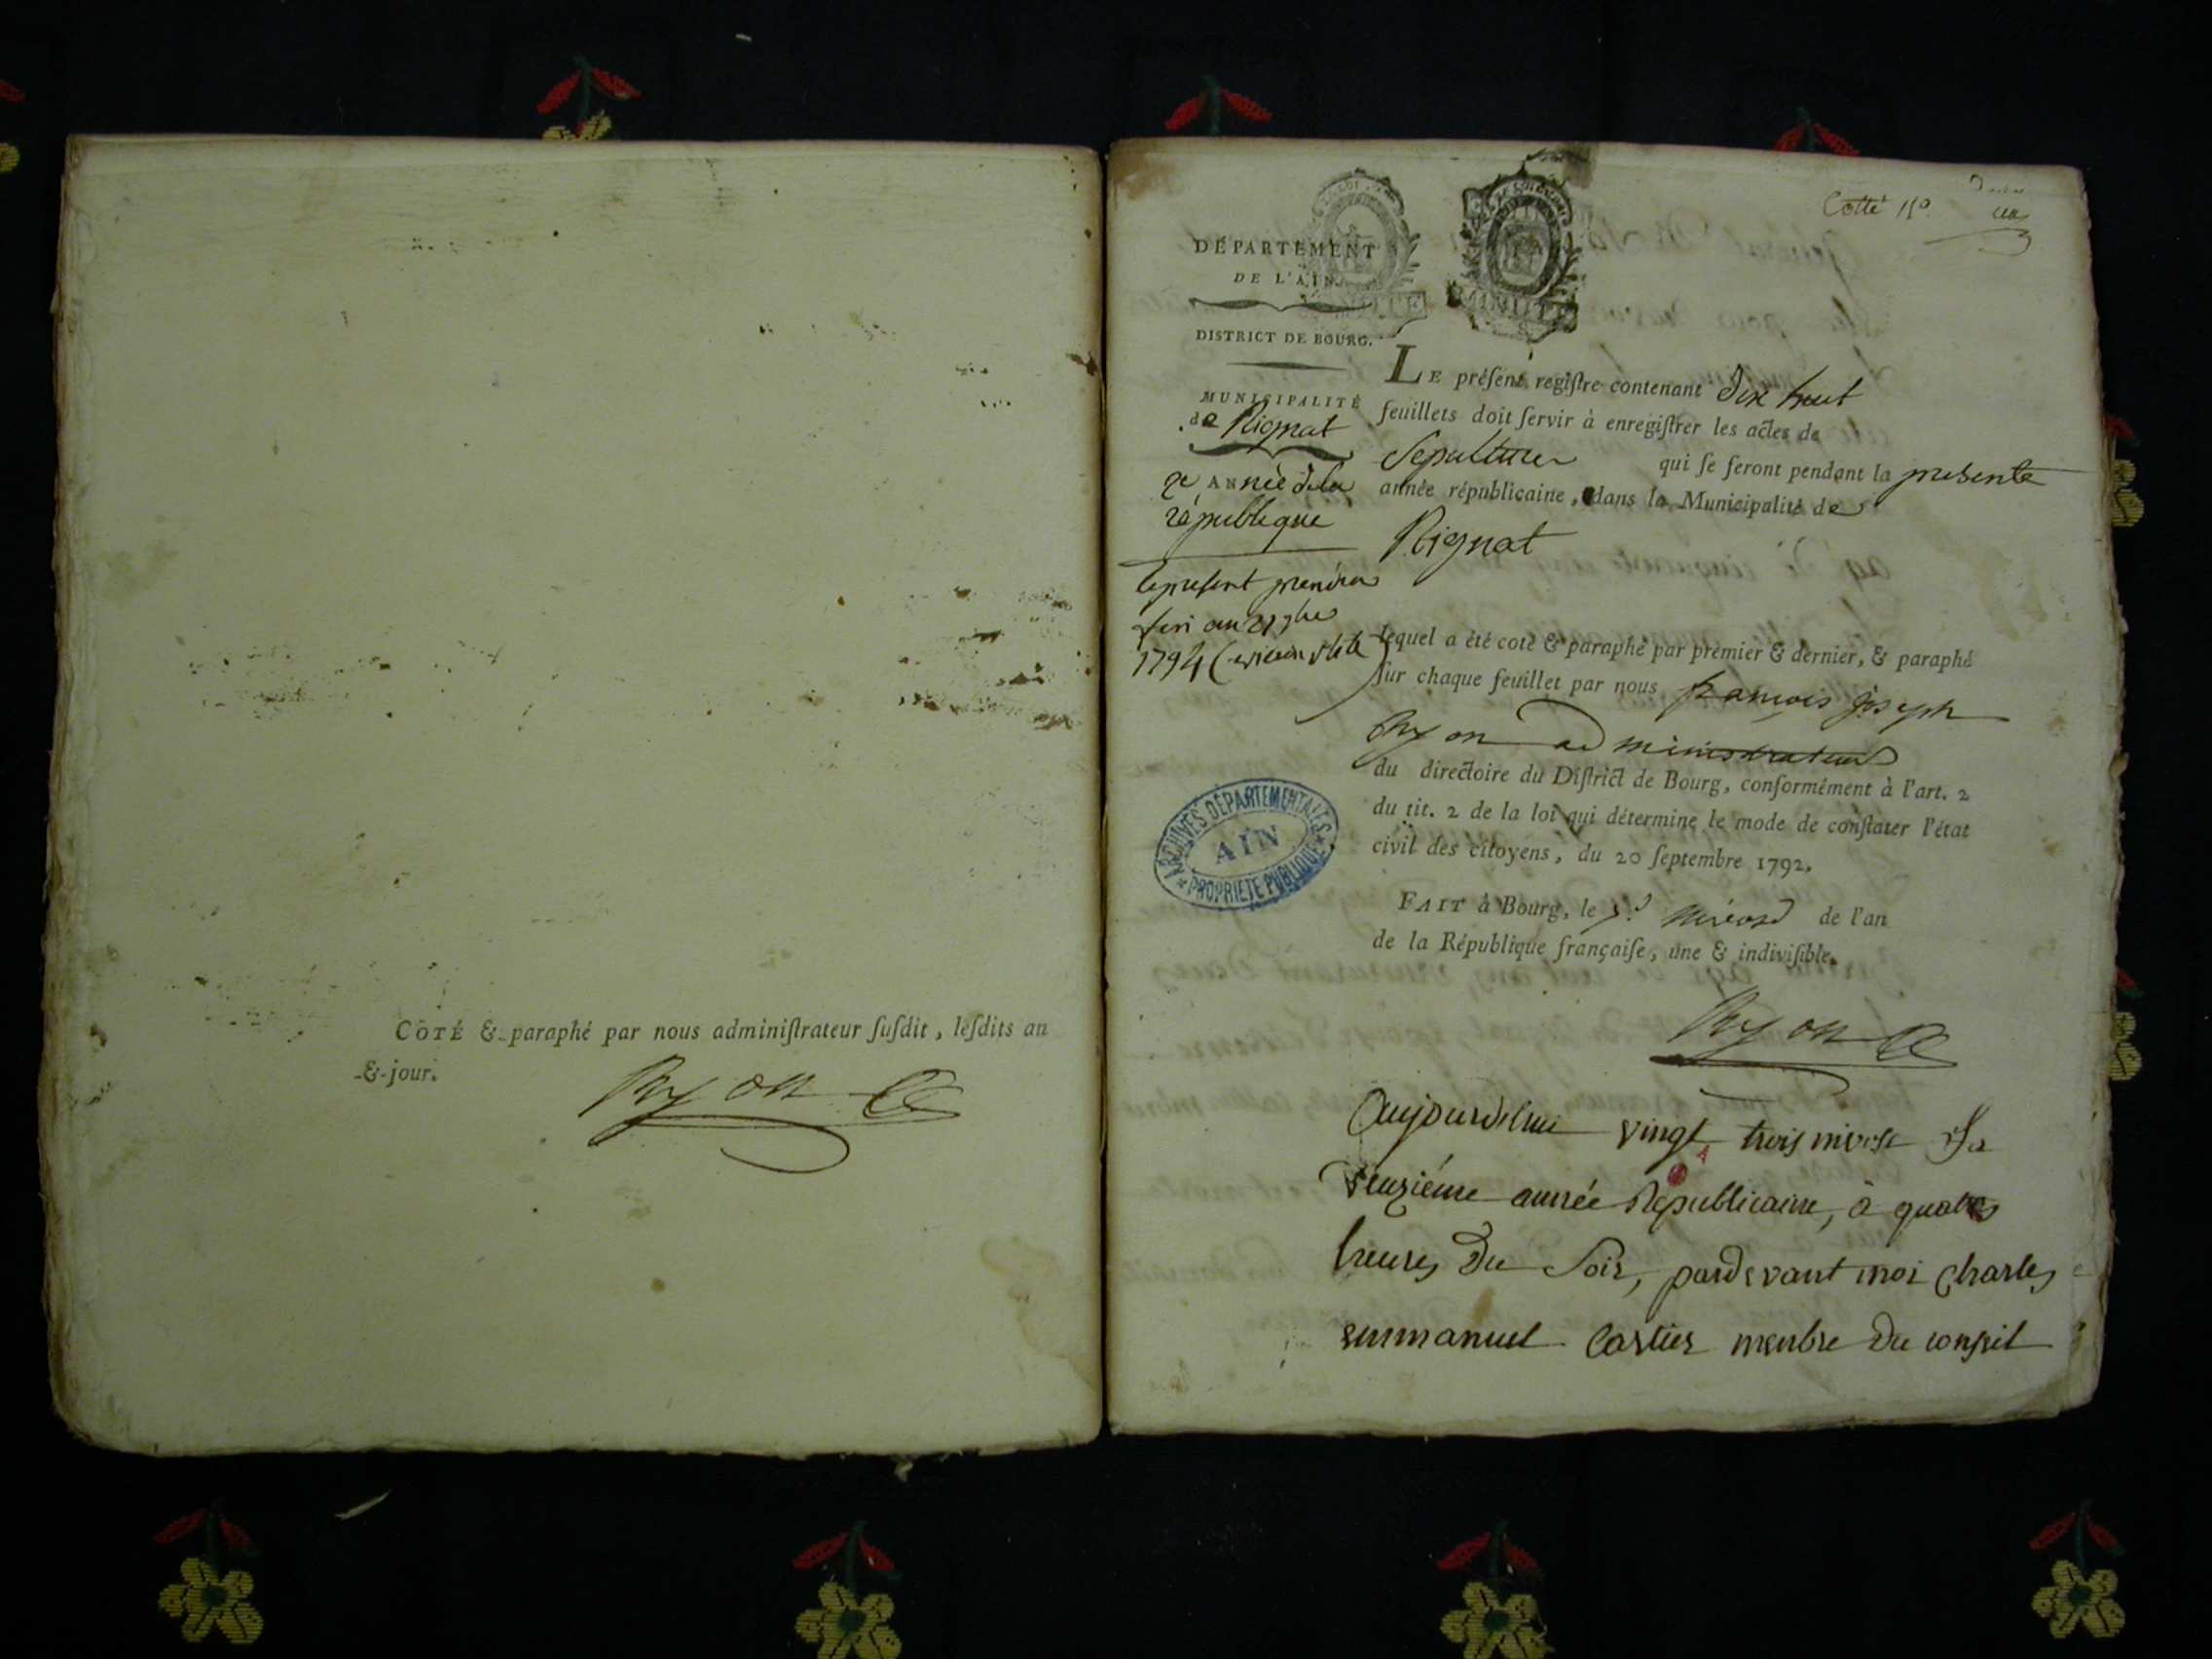 COTÉ & paraphé par nous adminiſtrateur ſuſdit, leſdits an
& jour.
Ryon
Cotté
DÉPARTEMENT
DE L'AIN.
DISTRICT DE BOURG.
MUNICIPALITÉ
de Rignat
2e ANnée de la
republique
le présent prendra
fin au 21 7bre
1794
MINUTE
LE préſent regiſtre contenant dix huit
feuillets doit ſervir à enregiſtrer les actes de
Sepulture qui ſe ſeront pendant la presente
année républicaine, dans la Municipalité de
Rignat
lequel a été coté & paraphé par premier & dernier, & paraphé
ſur chaque feuillet par nous francois joseph
Ryon administrateur
du directoire du Diſtrict de Bourg, conformément à l'art. 2
du tit. 2 de la loi qui détermine le mode de conſtater l'état
civil des citoyens, du 20 ſeptembre 1792.
FAIT à Bourg, le nivose de l'an
de la République françaiſe, une & indiviſible.
Ryon
ARCHIVES DÉPARTEMENTALES
AIN
PROPRIÉTÉ PUBLIQUE
aujourdelhui vingt trois nivose de la
deuxiéme année Republicaine, à quatre
heures du Soir, pardevant moi Charles
emmanuel Cartier menbre du conseil